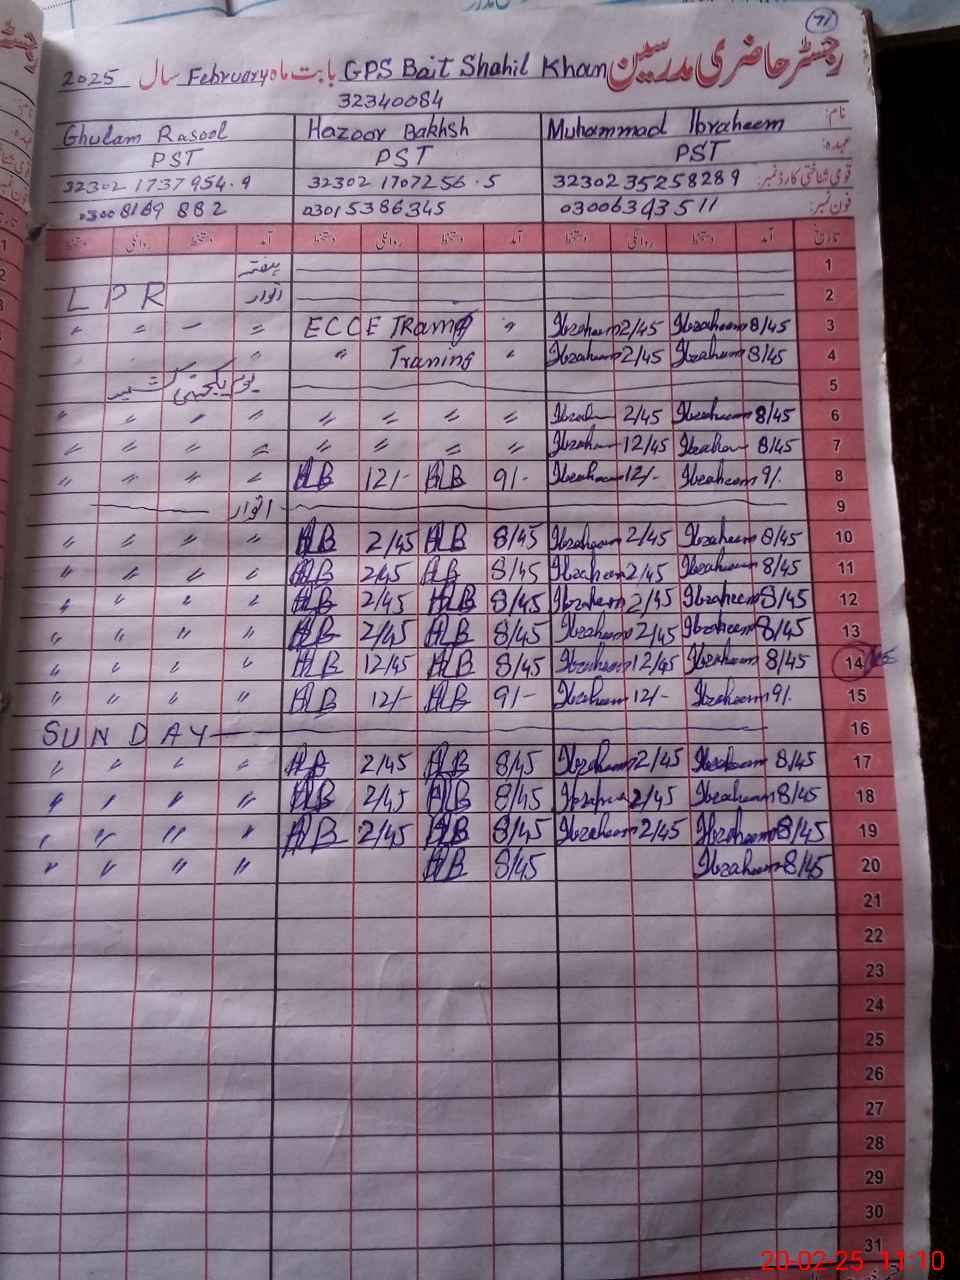 71
رجسٹر حاضری مدرسین GPS Bait Shahil Khan بابت ماہ February سال 2025
32340084
نام: Muhammad Ibraheem Hazoor Bakhsh Ghulam Rasool
عہدہ: PST PST PST
قومی شناختی کارڈ نمبر: 3230235258289 32302 1707256.5 32302 1737954.9
فون نمبر: 03006343511 03015386345 03008169882
تاریخ آمد دستخط روانگی دستخط آمد دستخط روانگی دستخط آمد دستخط روانگی دستخط
1 ہفتہ
2 اتوار L P R
3 8/45 Ibraheem 2/45 Ibraheem " ECCE Traning = — = "
4 8/45 Ibraheem 2/45 Ibraheem " Traning " "
5 یوم یکجہتی کشمیر
6 8/45 Ibraheem 2/45 Ibraheem " " " " " " " "
7 8/45 Ibraheem 12/45 Ibraheem " " " " " " " "
8 9/- Ibraheem 12/- Ibraheem 9/- HB 12/- HB " " " "
9 اتوار
10 8/45 Ibraheem 2/45 Ibraheem 8/45 HB 2/45 HB " " " "
11 8/45 Ibraheem 2/45 Ibraheem 8/45 HB 2/45 HB " " " "
12 8/45 Ibraheem 2/45 Ibraheem 8/45 HB 2/45 HB " " " "
13 8/45 Ibraheem 2/45 Ibraheem 8/45 HB 2/45 HB " " " "
14 8/45 Ibraheem 12/45 Ibraheem 8/45 HB 12/45 HB " " " "
15 9/- Ibraheem 12/- Ibraheem 9/- HB 12/- HB " " " "
16 SUNDAY
17 8/45 Ibraheem 2/45 Ibraheem 8/45 HB 2/45 HB " " " "
18 8/45 Ibraheem 2/45 Ibraheem 8/45 HB 2/45 HB " " " "
19 8/45 Ibraheem 2/45 Ibraheem 8/45 HB 2/45 HB " " " "
20 8/45 Ibraheem 8/45 HB " " " "
21
22
23
24
25
26
27
28
29
30
31
20-02-25 11:10